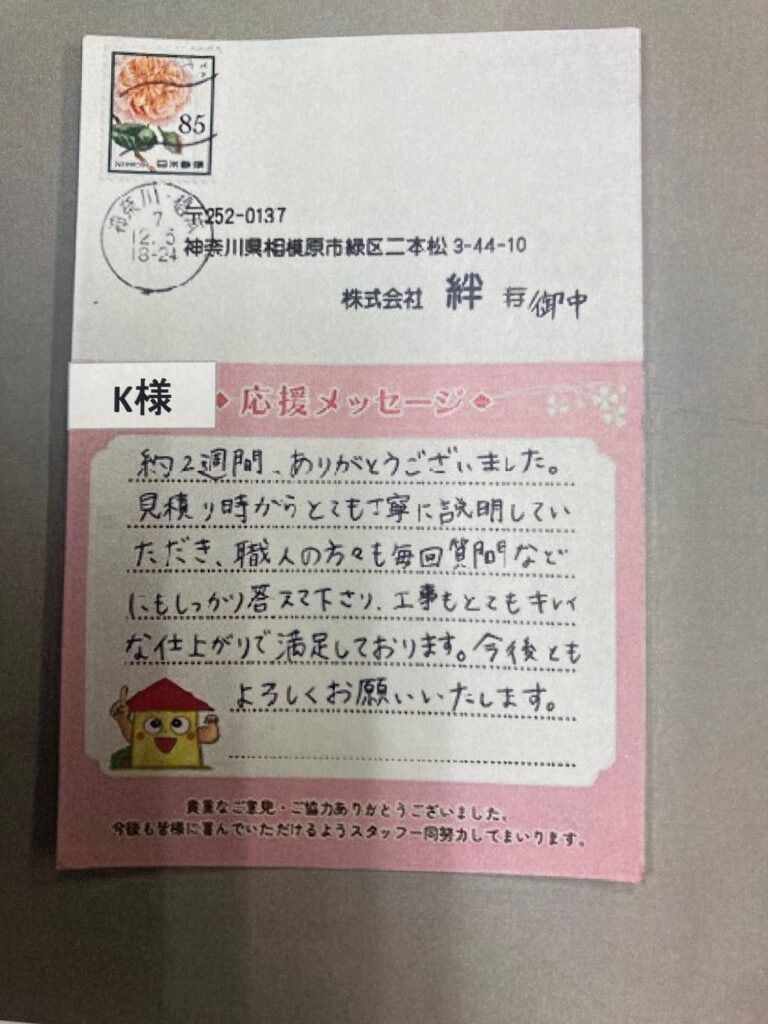 85
日本郵便
神奈川
7
12.5
18-24
〒252-0137
神奈川県相模原市緑区二本松3-44-10
株式会社 絆 御中
K様
応援メッセージ
約2週間、ありがとうございました。
見積り時からとても丁寧に説明してい
ただき、職人の方々も毎回質問など
にもしっかり答えて下さり、工事もとてもキレイ
な仕上がりで満足しております。今後とも
よろしくお願いいたします。
貴重なご意見・ご協力ありがとうございました。
今後も皆様に喜んでいただけるようスタッフ一同努力してまいります。